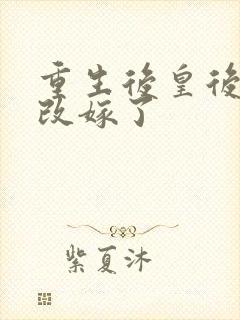 重生後皇後
改嫁了
紫夏沐